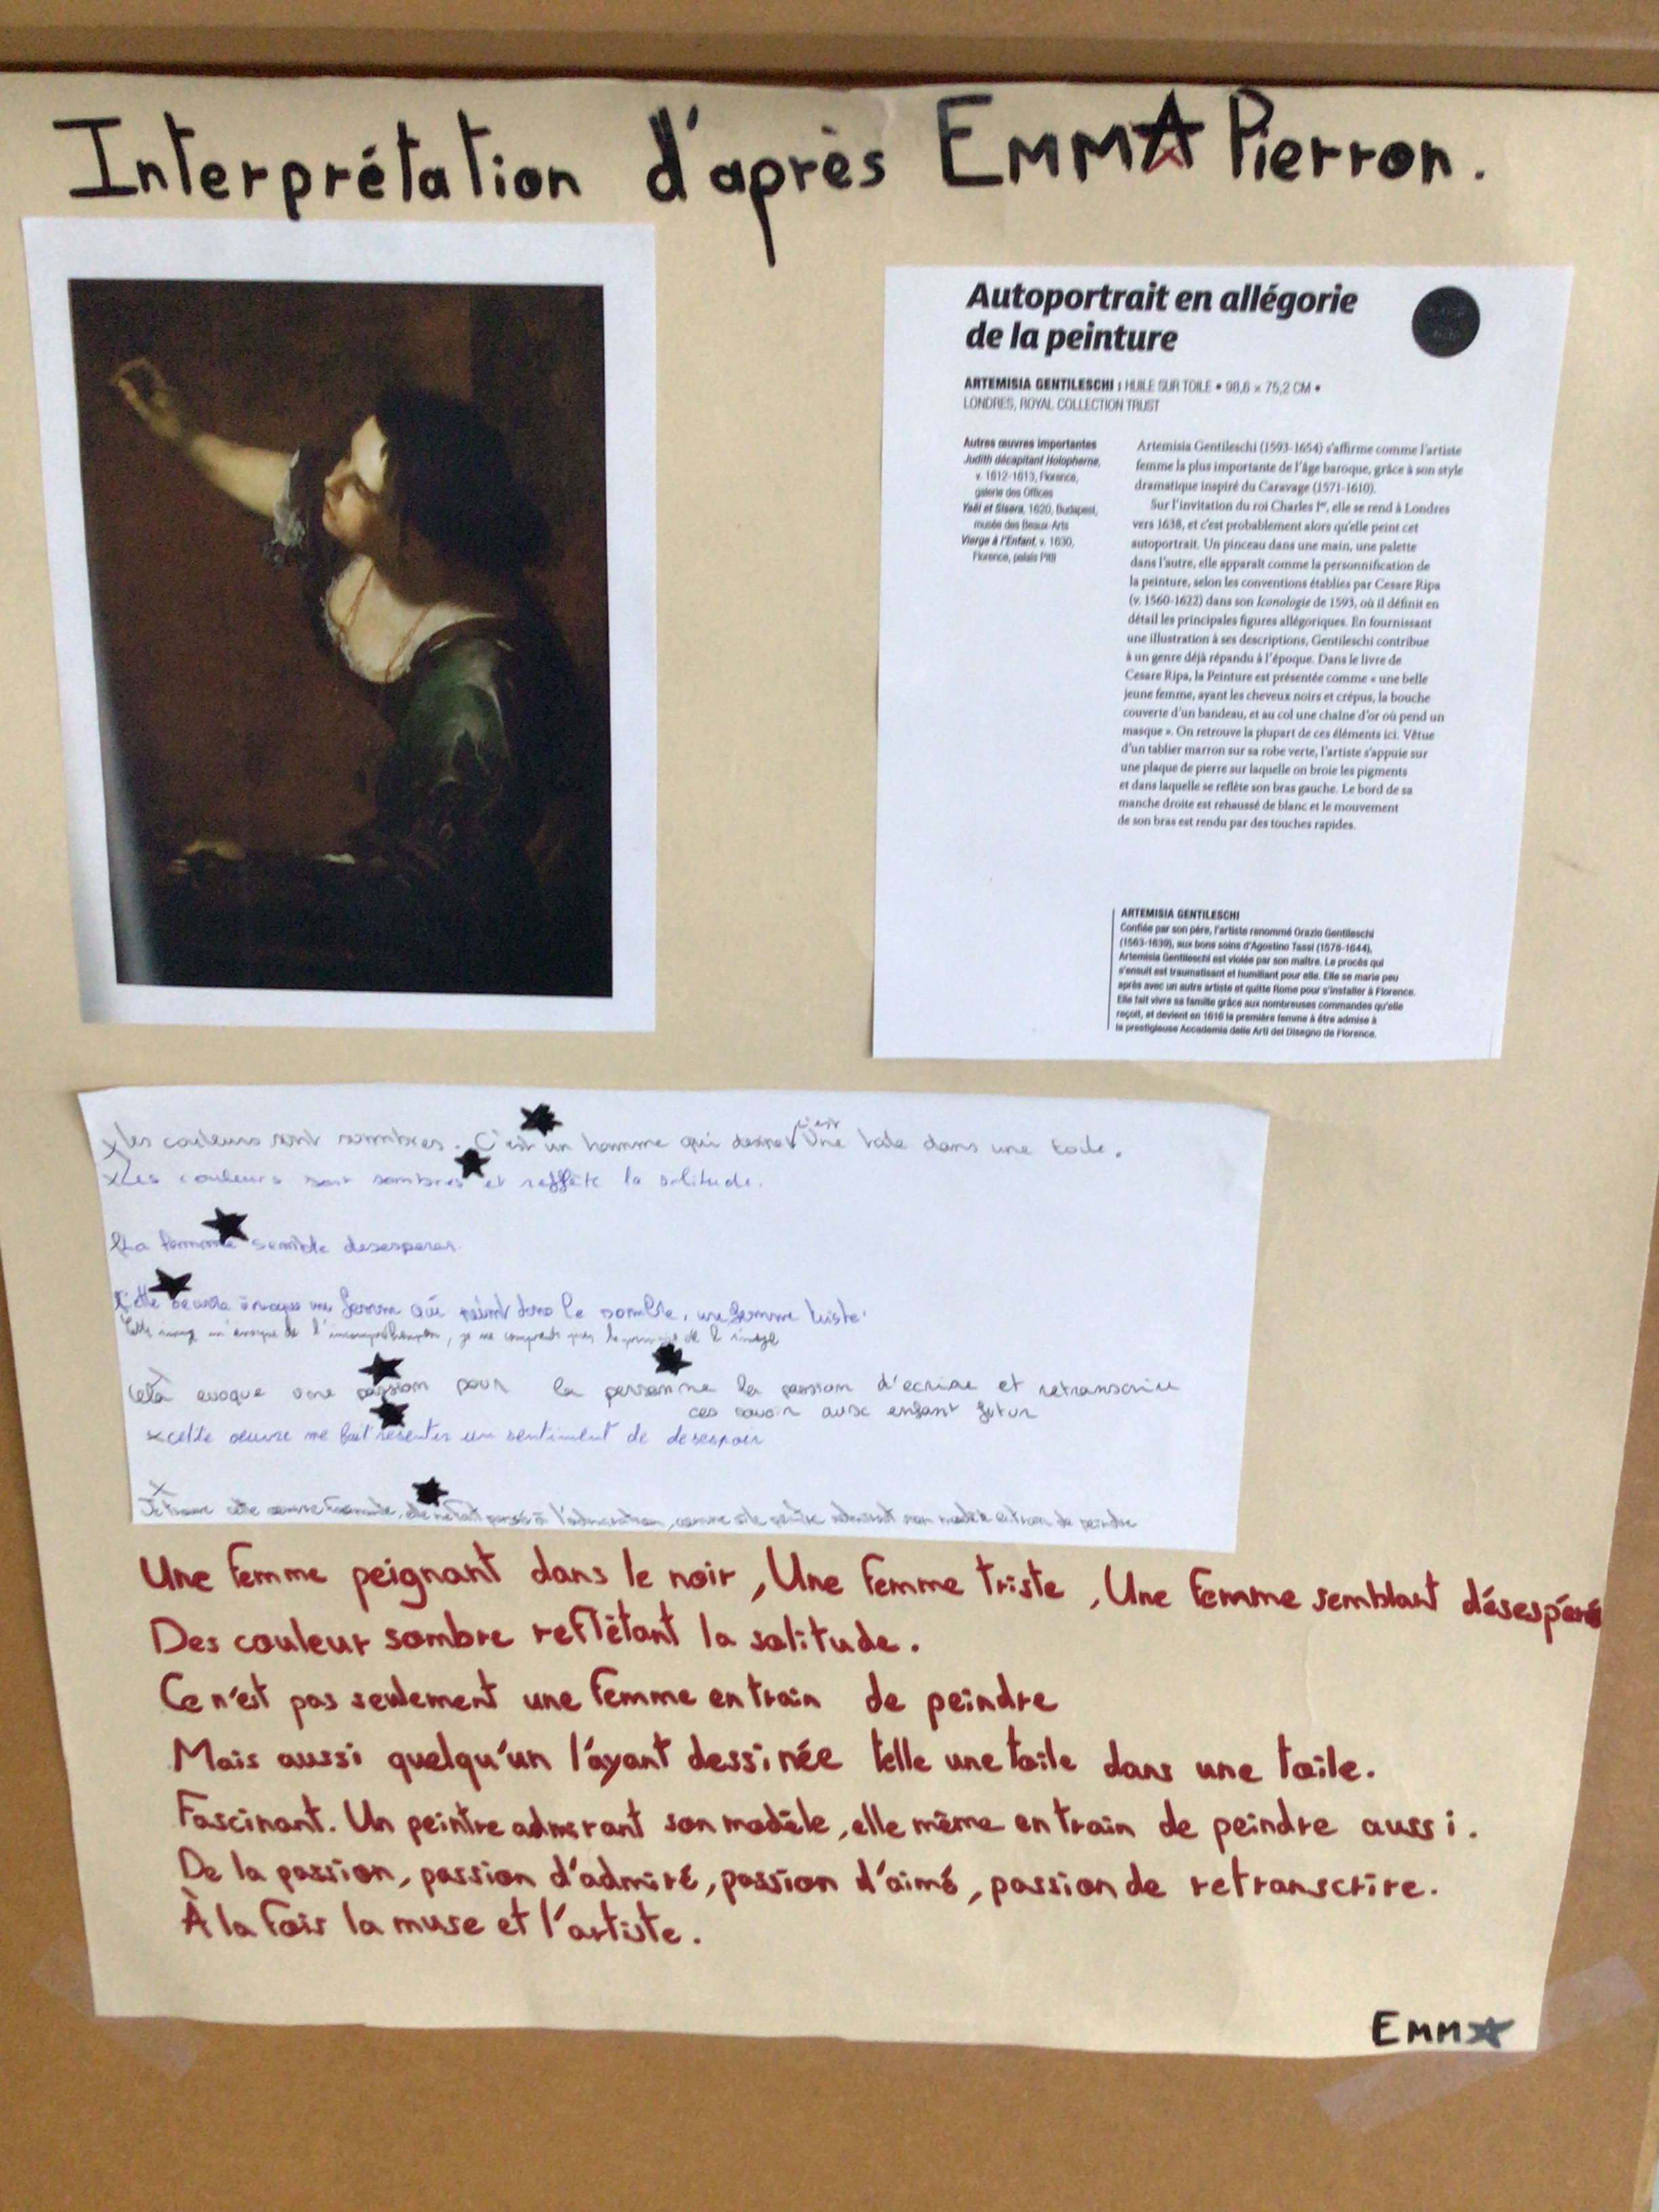 Interprétation d'après EMMA Pierron.
Autoportrait en allégorie
de la peinture
ARTEMISIA GENTILESCHI : HUILE SUR TOILE • 98,6 × 75,2 CM •
LONDRES, ROYAL COLLECTION TRUST
Autres œuvres importantes
Judith décapitant Holopherne,
v. 1612-1613, Florence,
galerie des Offices
Yaël et Sisera, 1620, Budapest,
musée des Beaux-Arts
Vierge à l'Enfant, v. 1630,
Florence, palais Pitti
Artemisia Gentileschi (1593-1654) s'affirme comme l'artiste
femme la plus importante de l'âge baroque, grâce à son style
dramatique inspiré du Caravage (1571-1610).
Sur l'invitation du roi Charles Ier, elle se rend à Londres
vers 1638, et c'est probablement alors qu'elle peint cet
autoportrait. Un pinceau dans une main, une palette
dans l'autre, elle apparaît comme la personnification de
la peinture, selon les conventions établies par Cesare Ripa
(v. 1560-1622) dans son Iconologie de 1593, où il définit en
détail les principales figures allégoriques. En fournissant
une illustration à ses descriptions, Gentileschi contribue
à un genre déjà répandu à l'époque. Dans le livre de
Cesare Ripa, la Peinture est présentée comme « une belle
jeune femme, ayant les cheveux noirs et crépus, la bouche
couverte d'un bandeau, et au col une chaîne d'or où pend un
masque ». On retrouve la plupart de ces éléments ici. Vêtue
d'un tablier marron sur sa robe verte, l'artiste s'appuie sur
une plaque de pierre sur laquelle on broie les pigments
et dans laquelle se reflète son bras gauche. Le bord de sa
manche droite est rehaussé de blanc et le mouvement
de son bras est rendu par des touches rapides.
ARTEMISIA GENTILESCHI
Confiée par son père, l'artiste renommé Orazio Gentileschi
(1563-1639), aux bons soins d'Agostino Tassi (1578-1644),
Artemisia Gentileschi est violée par son maître. Le procès qui
s'ensuit est traumatisant et humiliant pour elle. Elle se marie peu
après avec un autre artiste et quitte Rome pour s'installer à Florence.
Elle fait vivre sa famille grâce aux nombreuses commandes qu'elle
reçoit, et devient en 1616 la première femme à être admise à
la prestigieuse Accademia delle Arti del Disegno de Florence.
les couleurs sont sombres. C'est un homme qui c'est Une toile dans une toile.
Les couleurs sont sombres et reffléte la solitude.
La femme semble desesperer.
Cette une femme qui peint dans le sombre, une femme triste.
de l'incompréhension, je ne comprends pas de l'image
Cela evoque une passion pour la personne la passion d'ecrire et retranscrire
ces savoir aux enfant futur
cette œuvre me fait resentir un sentiment de desespoir
Je trouve cette œuvre, elle me fait à l'admiration, comme si le peintre admirait son modèle en train de peindre
Une femme peignant dans le noir, Une femme triste, Une femme semblant désespéré
Des couleur sombre reflétant la solitude.
Ce n'est pas seulement une femme en train de peindre
Mais aussi quelqu'un l'ayant dessinée telle une toile dans une toile.
Fascinant. Un peintre admirant son modèle, elle même en train de peindre aussi.
De la passion, passion d'admiré, passion d'aimé, passion de retranscrire.
À la fois la muse et l'artiste.
EMMA